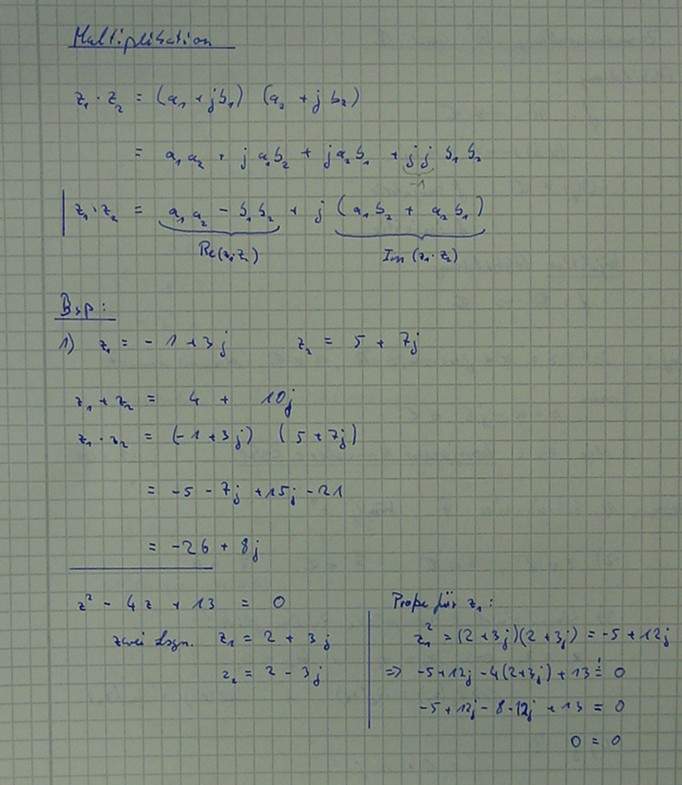 Multiplikation
z₁ · z₂ = (a₁ + jb₁) (a₂ + jb₂)
= a₁a₂ + ja₁b₂ + ja₂b₁ + jj b₁b₂
-1
z₁·z₂ = a₁a₂ - b₁b₂ + j (a₁b₂ + a₂b₁)
Re(z₁·z₂) Im(z₁·z₂)
Bsp:
1) z₁ = -1+3j z₂ = 5 + 7j
z₁+z₂ = 4 + 10j
z₁·z₂ = (-1+3j) (5+7j)
= -5 - 7j +15j -21
= -26 + 8j
z² - 4z + 13 = 0
zwei Lsgn. z₁ = 2 + 3j
z₂ = 2 - 3j
Probe für z₁:
z₁² = (2+3j)(2+3j) = -5+12j
=> -5+12j-4(2+3j)+13 != 0
-5+12j-8-12j+13 = 0
0 = 0